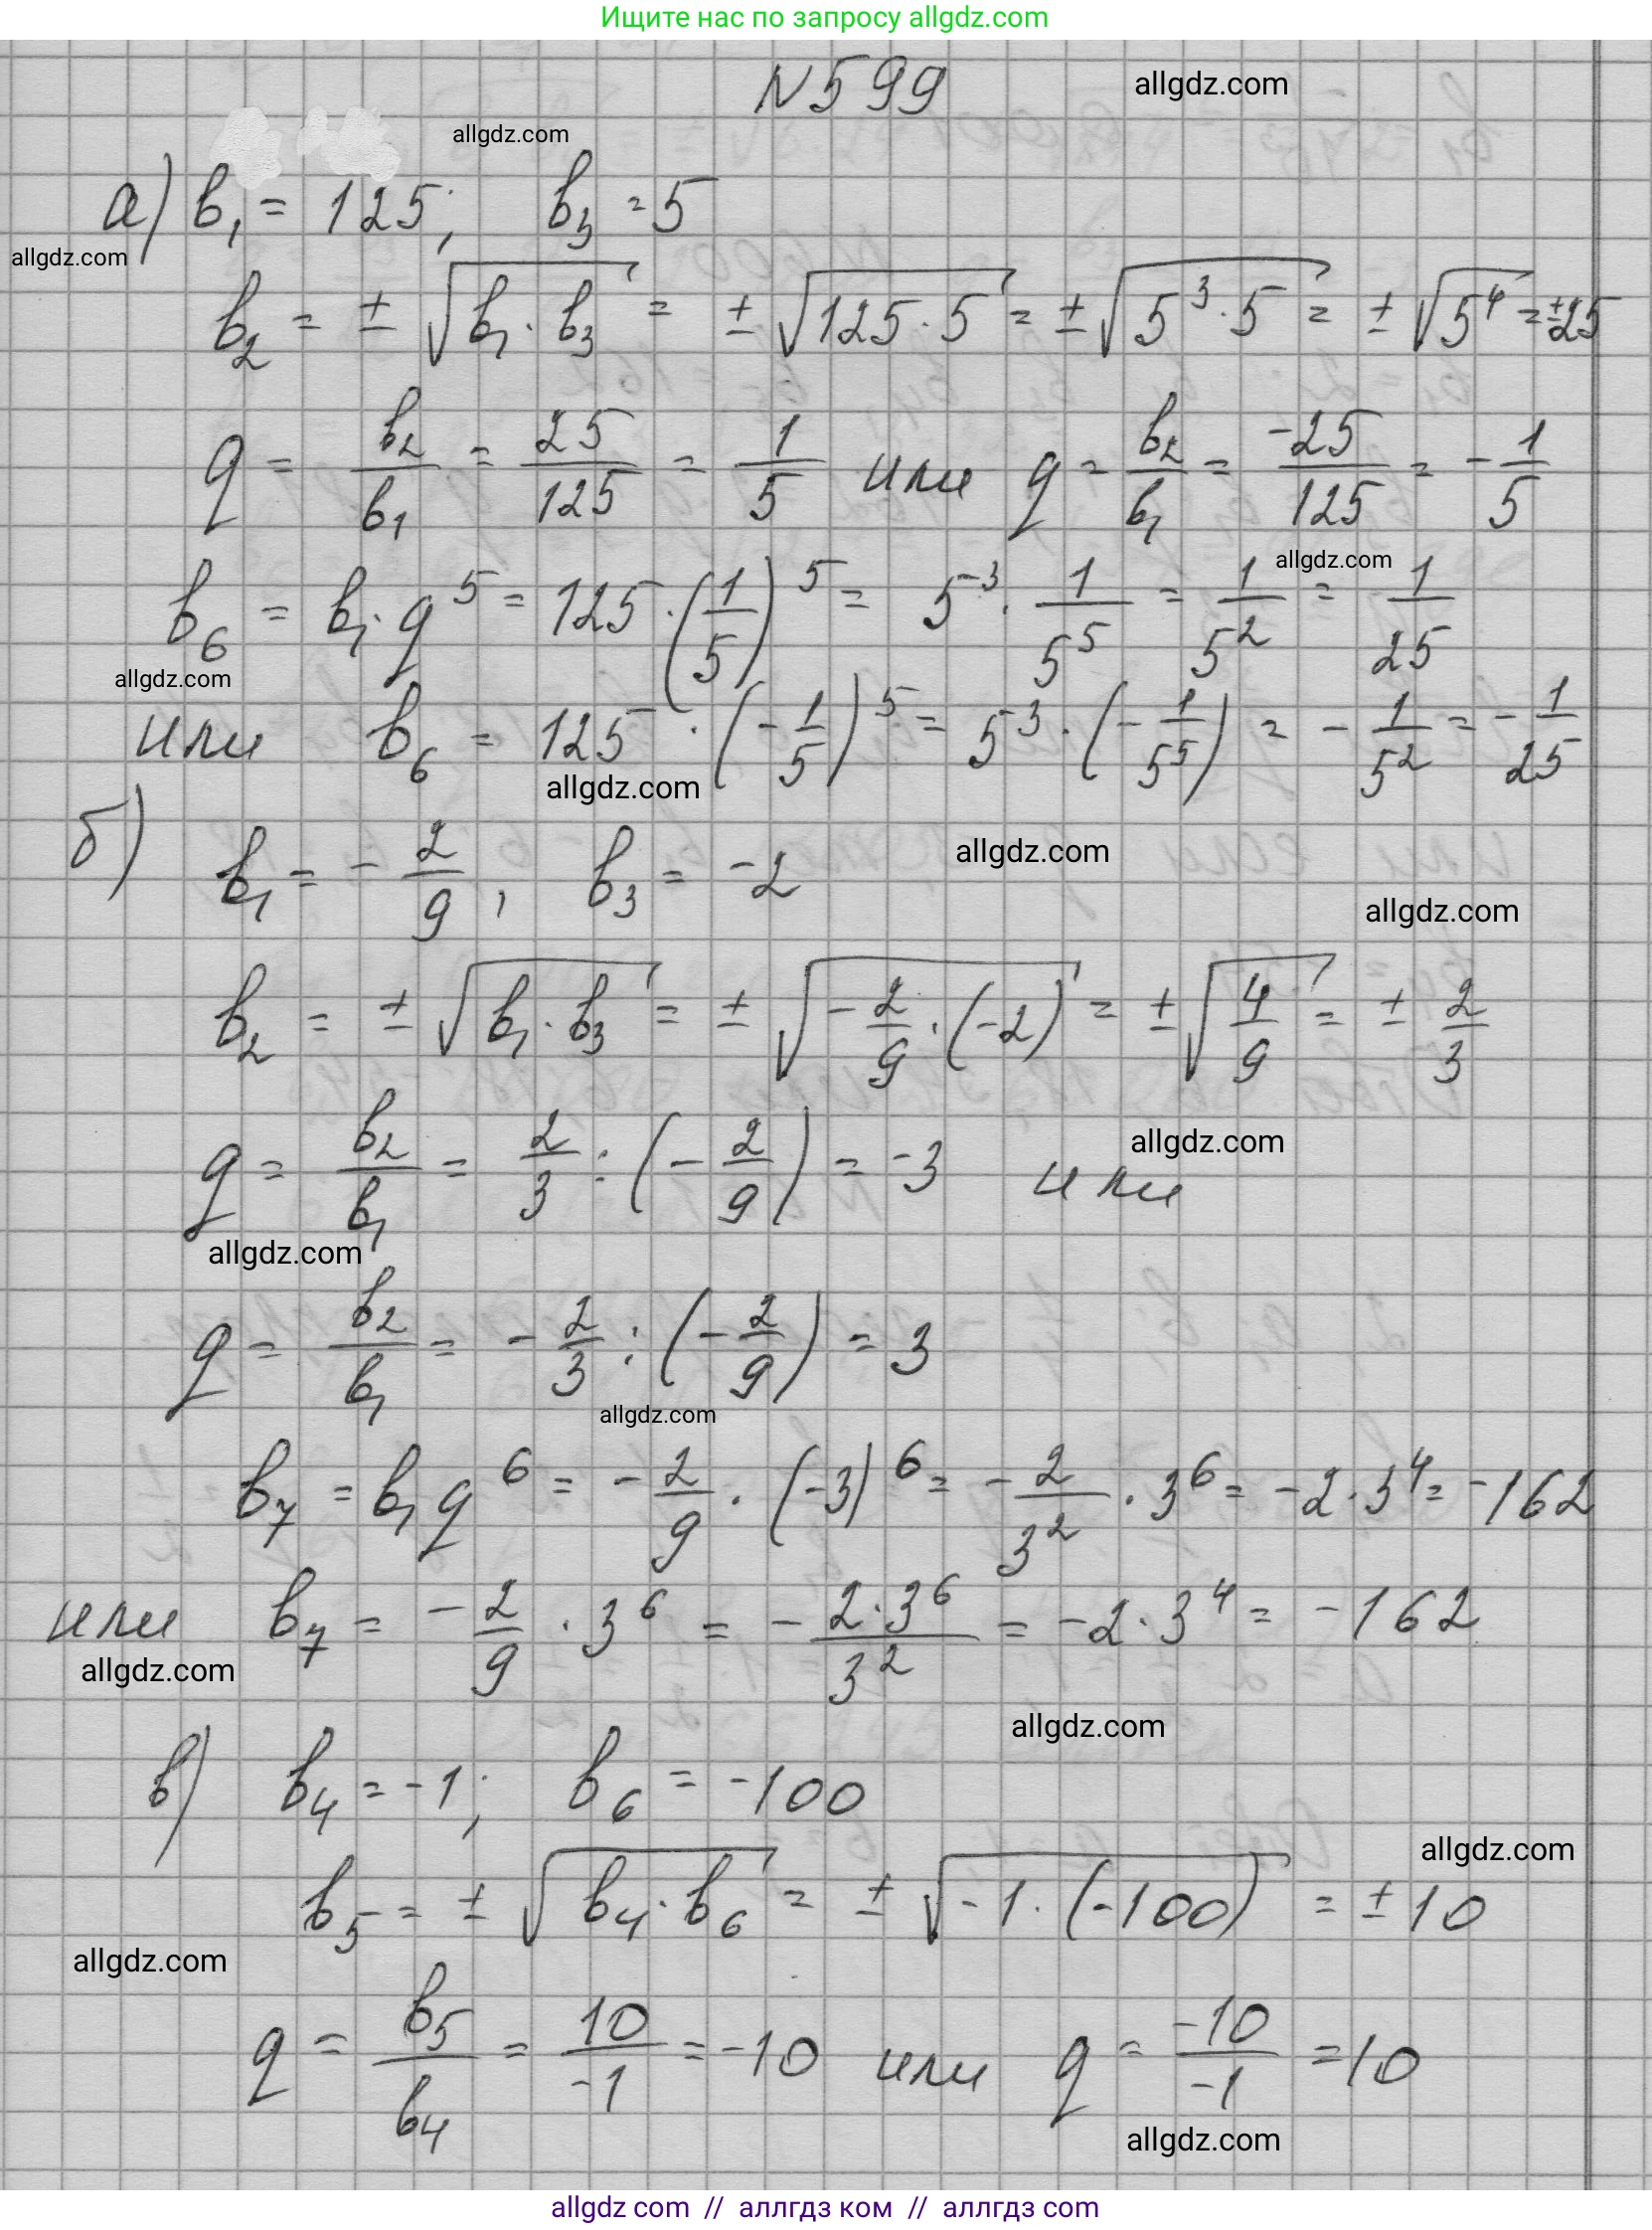 Ищите нас по запросу allgdz.com
N599
allgdz.com
allgdz.com
а) b₁ = 125; b₃ = 5
allgdz.com
b₂ = ± √(b₁ · b₃) = ± √(125 · 5) = ± √(5³ · 5) = ± √(5⁴) = ±25
q = b₂/b₁ = 25/125 = 1/5 или q = b₂/b₁ = -25/125 = -1/5
allgdz.com
b₆ = b₁ · q⁵ = 125 · (1/5)⁵ = 5³ · 1/5⁵ = 1/5² = 1/25
allgdz.com
или b₆ = 125 · (-1/5)⁵ = 5³ · (-1/5⁵) = -1/5² = -1/25
allgdz.com
б) b₁ = -2/9, b₃ = -2
allgdz.com
allgdz.com
b₂ = ± √(b₁ · b₃) = ± √(-2/9 · (-2)) = ± √(4/9) = ± 2/3
q = b₂/b₁ = 2/3 : (-2/9) = -3 или
allgdz.com
allgdz.com
q = b₂/b₁ = -2/3 : (-2/9) = 3
allgdz.com
b₇ = b₁ q⁶ = -2/9 · (-3)⁶ = -2/3² · 3⁶ = -2 · 3⁴ = -162
или b₇ = -2/9 · 3⁶ = -(2 · 3⁶)/3² = -2 · 3⁴ = -162
allgdz.com
allgdz.com
в) b₄ = -1; b₆ = -100
allgdz.com
b₅ = ± √(b₄ · b₆) = ± √(-1 · (-100)) = ± 10
allgdz.com
q = b₅/b₄ = 10/-1 = -10 или q = -10/-1 = 10
allgdz.com
allgdz com // аллгдз ком // аллгдз com